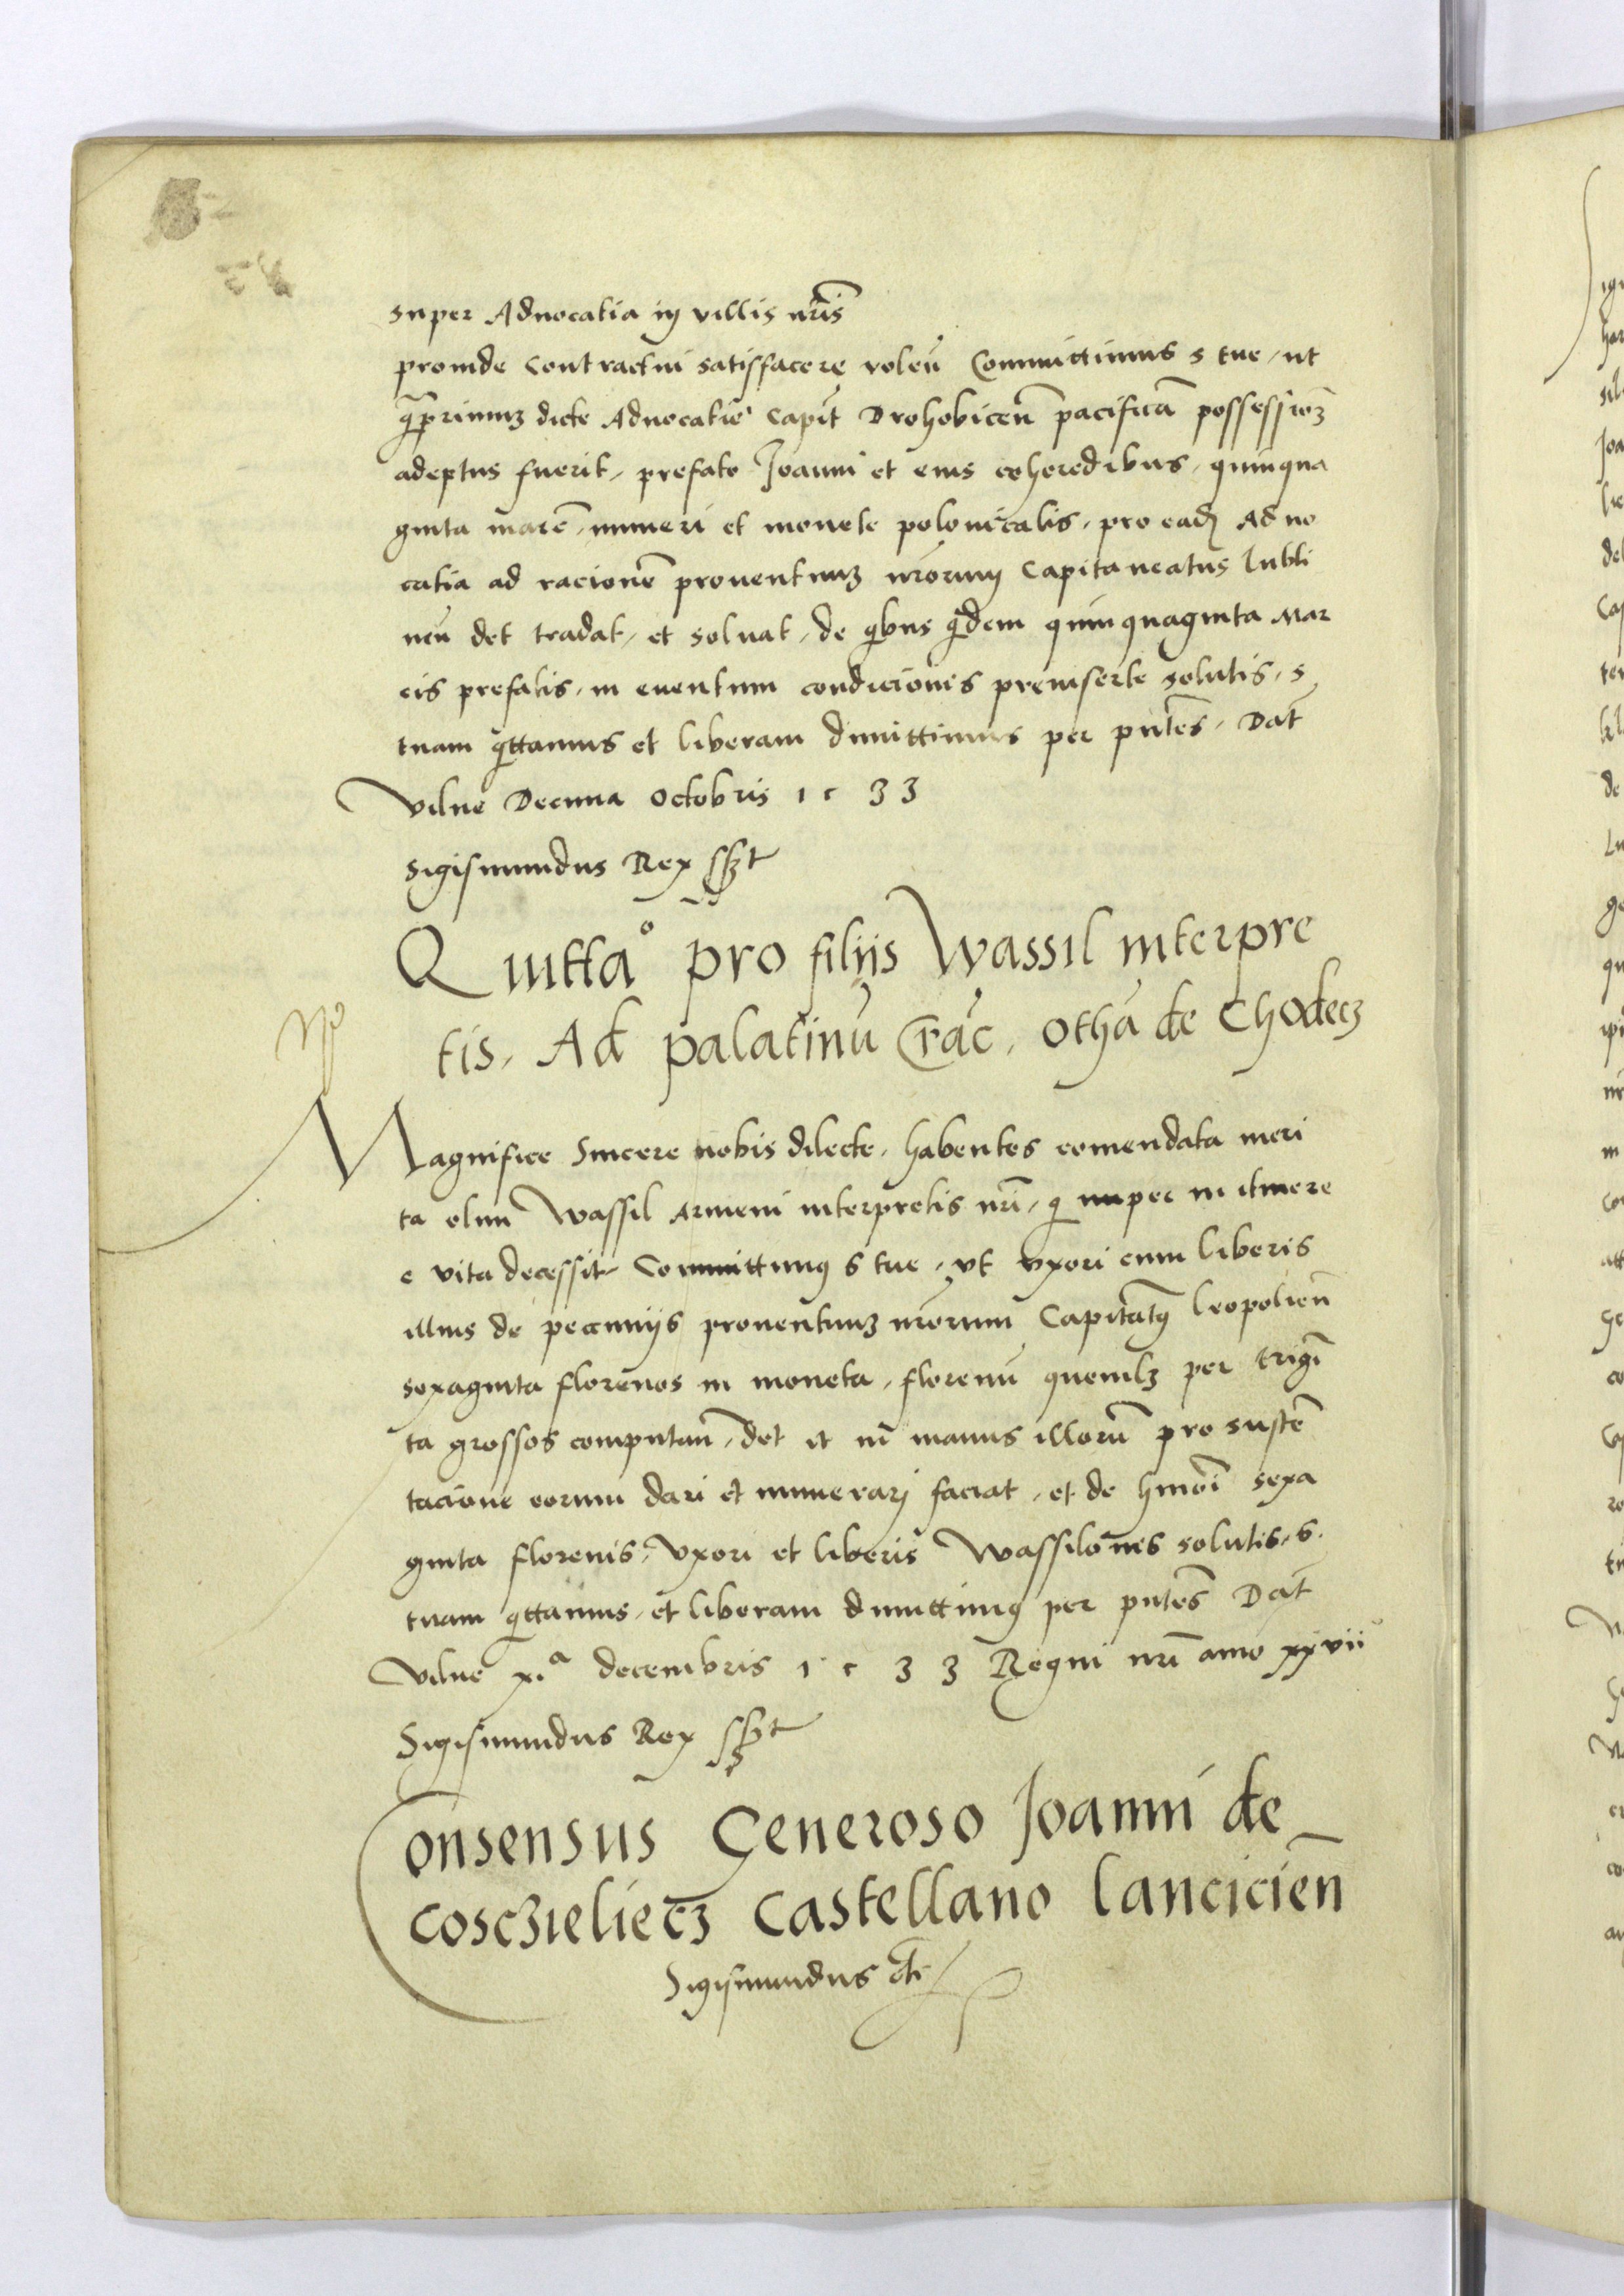 super Aduocatia in villis nr̃is
proinde contractui satisfacere volen̄ Committimus s tue, ut
q̃primuʒ dicte Aduocatie Capit̄ Drohobicen̄ pacificā possessionēʒ
adeptus fuerit, prefato Joanni et eius coheredibus, quinqua
ginta marc̄, numeri et monete polonicalis, pro eadꝫ Aduo
catia ad racionē prouentuuʒ nr̃orum Capitaneatus lubli
nen̄ det tradat, et soluat, de qibus qidem quinquaginta Mar
cis prefatis, in euentum condicionis preinserte solutis, s
tuam qittamus et liberam dimittimus per pñtes, Dat̄
Vilne Decima Octobris 1 5 3 3
Sigismundus Rex sszt
Quitta° pro filiis Wassil interpre
tis, Ad palatinū Crac̄, Othā de Chodecz
Magnifice Sincere nobis dilecte, habentes comendata meri
ta olim Wassil Armeni interpretis nr̃i, qi nuper in itinere
e vita decessit, Committimꝰ s tue, vt vxori cum liberis
illius de pecuniis prouentuuʒ nr̃orum Capitātꝰ leopolien̄
sexaginta florenos in moneta, florenū quemlʒ per trigī
ta grossos computan̄, det et in manus illorū pro sustē
tacione eorum dari et numerari faciat, et de hmoi sexa
ginta florenis, vxori et liberis Wassilonis solutis, s.
tuam qittamus, et liberam dimittimꝰ per pñtes Dat̄
Vilne xiᵃ decembris 1 5 3 3 Regni nr̃i anno xxvii
Sigismundus Rex sszt
Consensus Generoso Joanni de
Cosczieliecz Castellano lancicien̄
Sigismundus etc